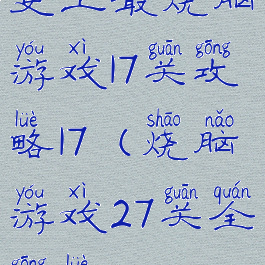 史上最烧脑
yóu xì guān gōng
游戏17关攻
lüè shāo nǎo
略17（烧脑
yóu xì guān quán
游戏27关全
gōng lüè